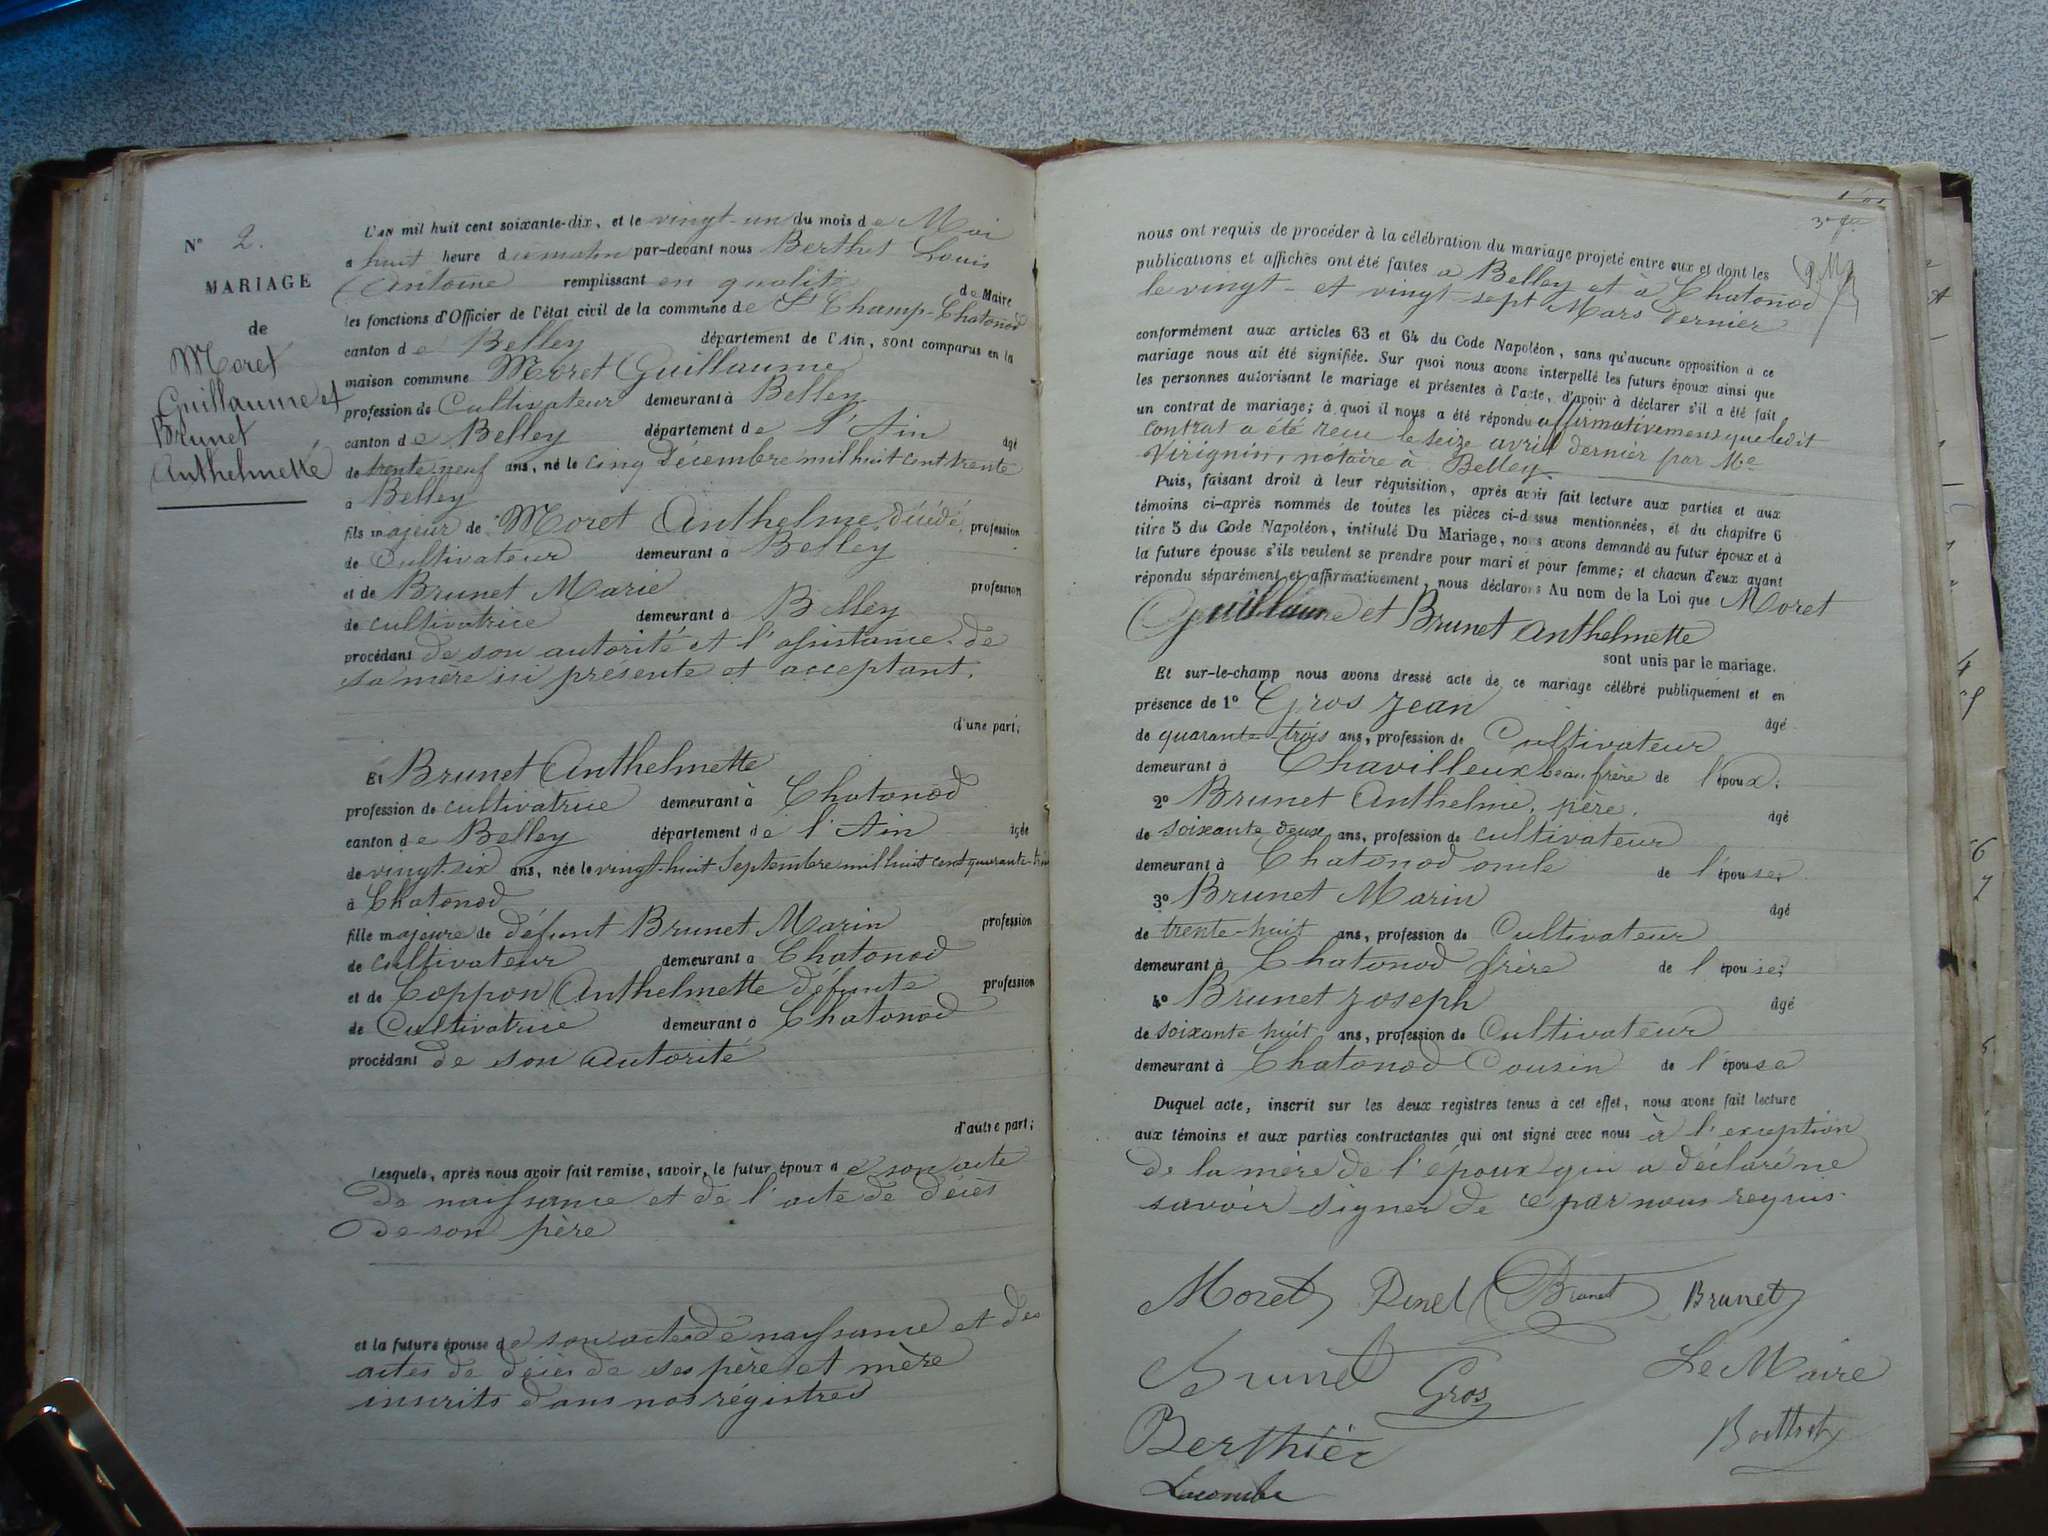 N° 2.
MARIAGE
de
Moret
Guillaume et
Brunet
Anthelmette
L'AN mil huit cent soixante-dix, et le vingt-un du mois de Mai
a huit heure du matin par-devant nous Berthet Louis
Antoine remplissant en qualité de Maire
les fonctions d'Officier de l'état civil de la commune de St Champ-Chatonod
canton de Belley département de l'Ain, sont comparus en la
maison commune Moret Guillaume
profession de Cultivateur demeurant à Belley
canton de Belley département de l'Ain âgé
de trente-neuf ans, né le cinq Décembre mil huit cent trente
a Belley
fils majeur de Moret Anthelme, décédé, profession
de Cultivateur demeurant à Belley
et de Brunet Marie profession
de cultivatrice demeurant à Belley
procédant de son autorité et l'assistance de
sa mère ici présente et acceptant.
d'une part;
Et Brunet Anthelmette
profession de cultivatrice demeurant à Chatonod
canton de Belley département de l'Ain âgée
de vingt-six ans, née le vingt-huit Septembre mil huit cent quarante-trois
à Chatonod
fille majeure de défunt Brunet Marin profession
de cultivateur demeurant a Chatonod
et de Coppon Anthelmette défunte profession
de Cultivatrice demeurant à Chatonod
procédant de son autorité
d'autre part;
Lesquels, après nous avoir fait remise, savoir, le futur époux de son acte
de naissance et de l'acte de décès
de son père
et la future épouse de son acte de naissance et des
actes de décès de ses père et mère
inscrits dans nos régistres
nous ont requis de procéder à la célébration du mariage projeté entre eux et dont les
publications et affiches ont été faites a Belley et à Chatonod
le vingt- et vingt-sept Mars dernier
conformément aux articles 63 et 64 du Code Napoléon, sans qu'aucune opposition à ce
mariage nous ait été signifiée. Sur quoi nous avons interpellé les futurs époux ainsi que
les personnes autorisant le mariage et présentes à l'acte, d'avoir à déclarer s'il a été fait
un contrat de mariage; à quoi il nous a été répondu affirmativement que ledit
contrat a été recu le seize avril dernier par Me
Virignin, notaire à Belley
Puis, faisant droit à leur réquisition, après avoir fait lecture aux parties et aux
témoins ci-après nommés de toutes les pièces ci-dessus mentionnées, et du chapitre 6
titre 5 du Code Napoléon, intitulé Du Mariage, nous avons demandé au futur époux et à
la future épouse s'ils veulent se prendre pour mari et pour femme; et chacun d'eux ayant
répondu séparément et affirmativement, nous déclarons Au nom de la Loi que Moret
Guillaume et Brunet Anthelmette
sont unis par le mariage.
Et sur-le-champ nous avons dressé acte de ce mariage célébré publiquement et en
présence de 1° Gros Jean âgé
de quarante-trois ans, profession de Cultivateur
demeurant à Chavilleux beau frère de l'époux;
2° Brunet Anthelme, père, âgé
de soixante deux ans, profession de cultivateur
demeurant à Chatonod oncle de l'épouse;
3° Brunet Marin âgé
de trente-huit ans, profession de Cultivateur
demeurant à Chatonod frère de l'épouse;
4° Brunet Joseph âgé
de soixante huit ans, profession de Cultivateur
demeurant à Chatonod Cousin de l'épouse
Duquel acte, inscrit sur les deux registres tenus à cet effet, nous avons fait lecture
aux témoins et aux parties contractantes qui ont signé avec nous à l'exception
de la mère de l'époux qui a déclaré ne
savoir signer de ce par nous requis.
Moret Brunet Brunet
Brunet Gros Le Maire
Berthier Berthet
Lacombe